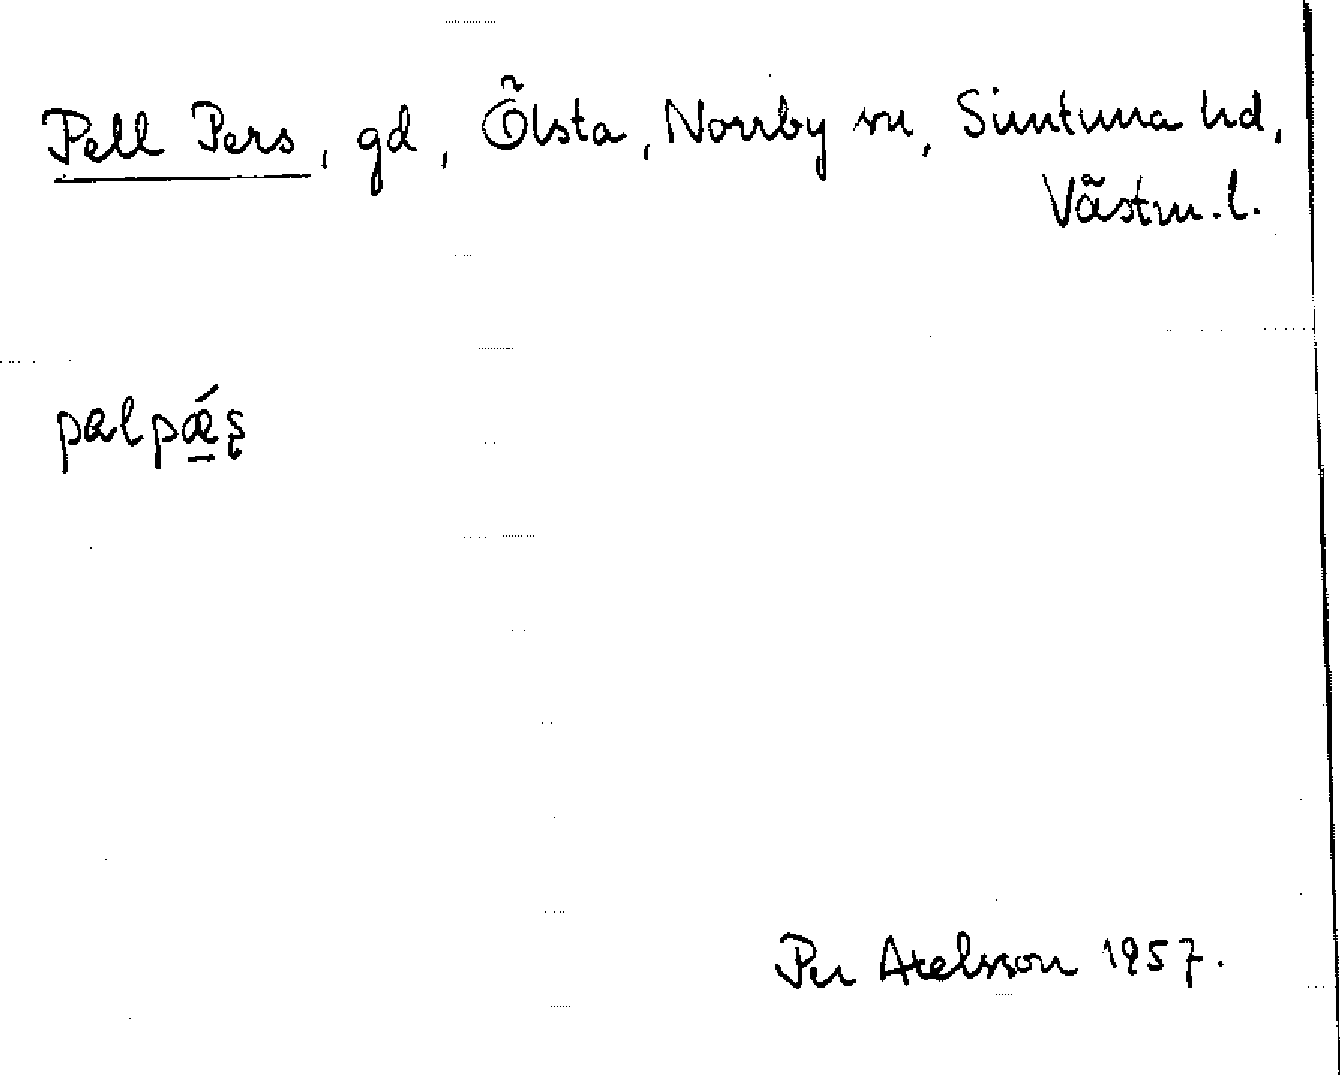 Pell Pers, gd, Ölsta, Norrby sn, Simtuna hd,
Västm. l.
palpǽ̱ʂ
Per Axelsson 1957.